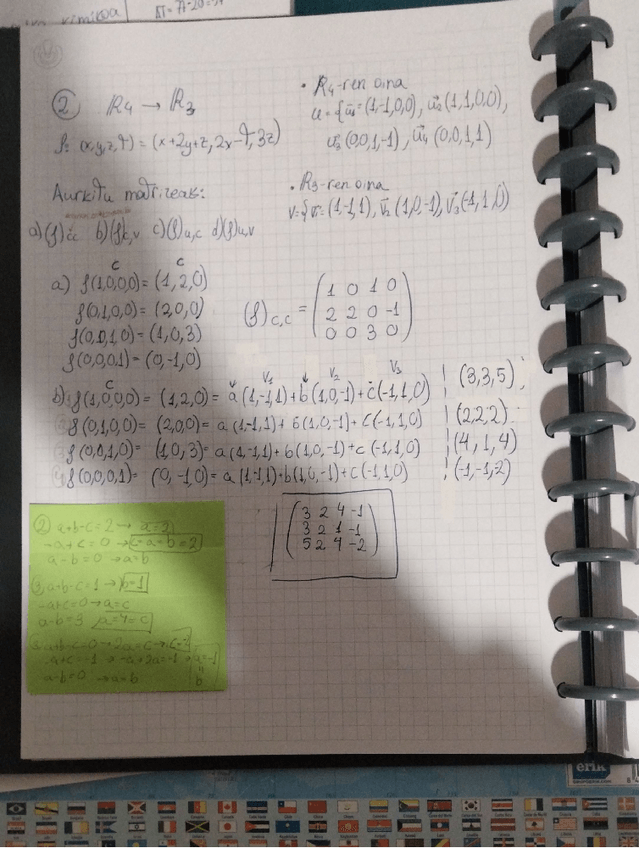 ΔT = 77-20=57
kimikoa
② R4 → R3
f: (x,y,z,t) = (x+2y+z, 2x-t, 3z)
• R4-ren oina
u={u1=(1,-1,0,0), u2(1,1,0,0),
u3(0,0,1,-1), u4(0,0,1,1)
Aurkitu matrizeak:
• R3-ren oina
v={v1=(1,-1,1), v2(1,0,-1), v3(-1,1,0)
a)(f)cc b)(f)c,v c)(f)u,c d)(f)u,v
c c
a) f(1,0,0,0) = (1,2,0)
f(0,1,0,0) = (2,0,0)
f(0,0,1,0) = (1,0,3)
f(0,0,0,1) = (0,-1,0)
(f)c,c =
1 0 1 0
2 2 0 -1
0 0 3 0
c v1 v2 v3
b) f(1,0,0,0) = (1,2,0) = a(1,-1,1)+b(1,0,-1)+c(-1,1,0) (3,3,5)
f(0,1,0,0) = (2,0,0) = a(1,-1,1)+b(1,0,-1)+c(-1,1,0) (2,2,2)
f(0,0,1,0) = (1,0,3) = a(1,-1,1)+b(1,0,-1)+c(-1,1,0) (4,1,4)
f(0,0,0,1) = (0,-1,0) = a(1,-1,1)+b(1,0,-1)+c(-1,1,0) (-1,-1,2)
3 2 4 -1
3 2 1 -1
5 2 4 -2
② a+b-c=2 → a=2
-a+c=0 → c=a=b=2
a-b=0 → a=b
a+b-c=1 → b=1
-a+c=0 → a=c
a-b=3 a=4=c
a+b-c=0 → 2a=c
-a+c=-1 → -a+2a=-1 → a=-1
a-b=0 → a=b
erik